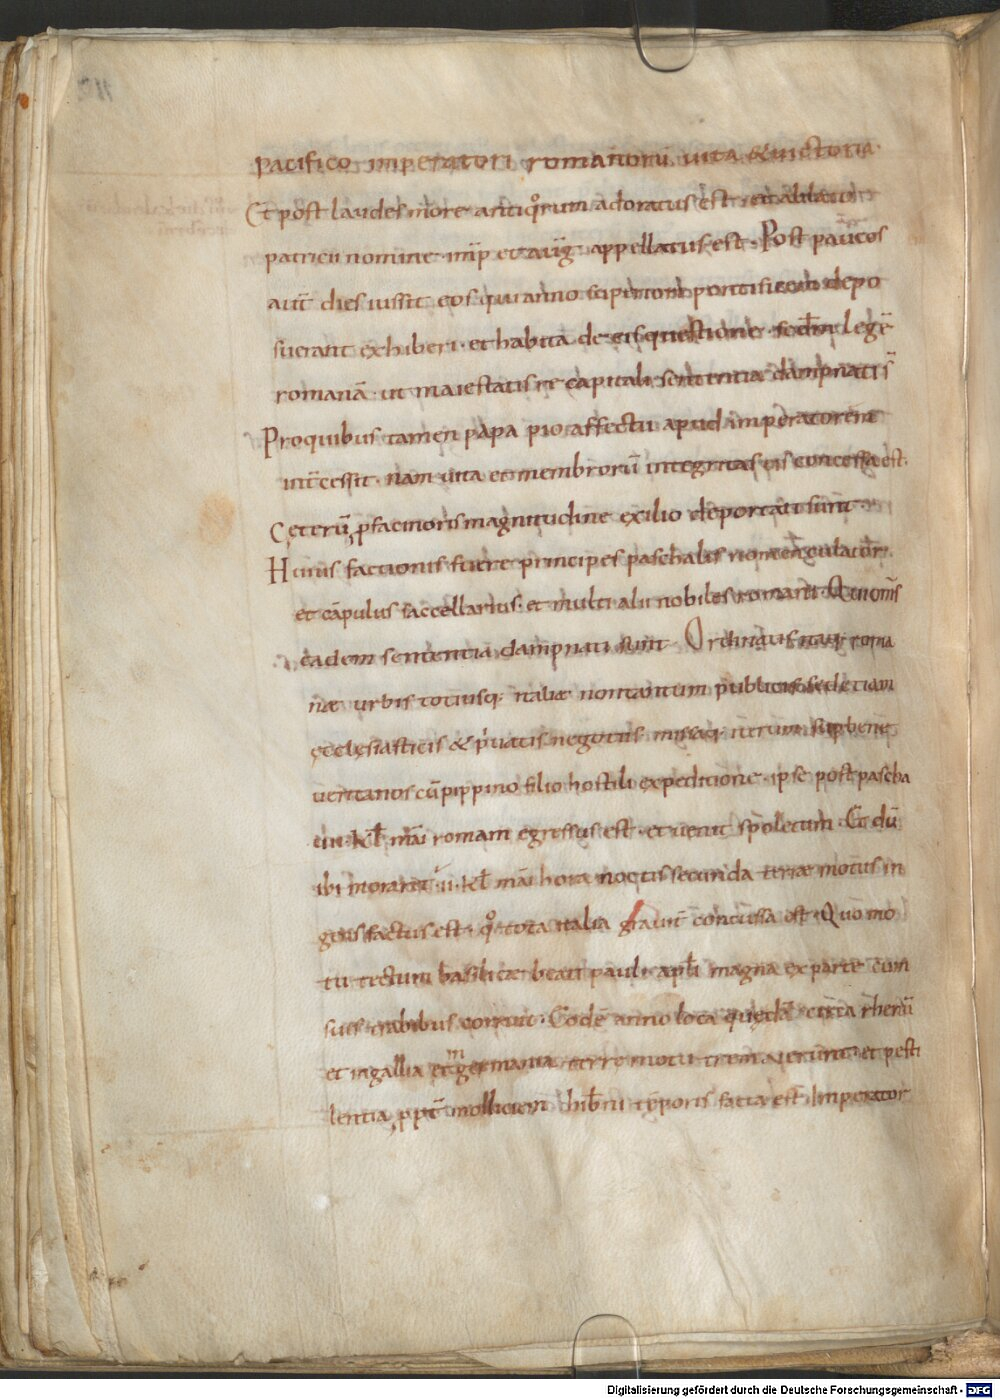 pacifico imperatori romanorū uita & uictoria.
Et post laudes more antiqͦrum adoratus est. et ablato
patricii nomine. imp̄ et auḡ appellatus est. Post paucos
aut̄ dies iussit eos qui anno superiori pontificem depo
suerant exhiberi. et habita de eis questione. secdm̄ legē
romanā. ut maiestatis rei capitali sententia dampnati s̄
Pro quibus tamen papa pio affectu apud imperatorem
int̄cessit. nam uita et membrorū integritas eis concessa est.
Cęterū ꝓ facinoris magnitudine exilio deportati sunt.
Huius factionis fuere principes paschalis nomenculator.
et cāpulus saccellarius. et multi alii nobiles romani. Qui om̄s
eadem sententia dampnati sunt. Ordinatis itaq; roma
næ urbis totiusq; italiæ non tantum publicis sed etiam
ęcclęsiasticis & p̍uatis negotiis missoq; iterum sup bene
uentanos cū pippino filio hostili expeditione. ipse post pascha
uii. kl̄ mai romam egressus est. et uenit spoletum. Et dū
ibi moraret᷑ ii. kl̄ mai hora noctis secunda terræ motus in
gens factus est. qͦ tota italia grauit̄ concussa est. Quo mo
tu tectum basilicæ beati pauli apl̄i magna ex parte cum
suis trabibus corruit. Eodē anno loca quędā circa rhenū
et in gallia et in germania terre motu tremauerunt. et pesti
lentia ꝓpt̄ molliciem hib̄ni tēporis facta est. Imperator
118
Digitalisierung gefördert durch die Deutsche Forschungsgemeinschaft - DFG